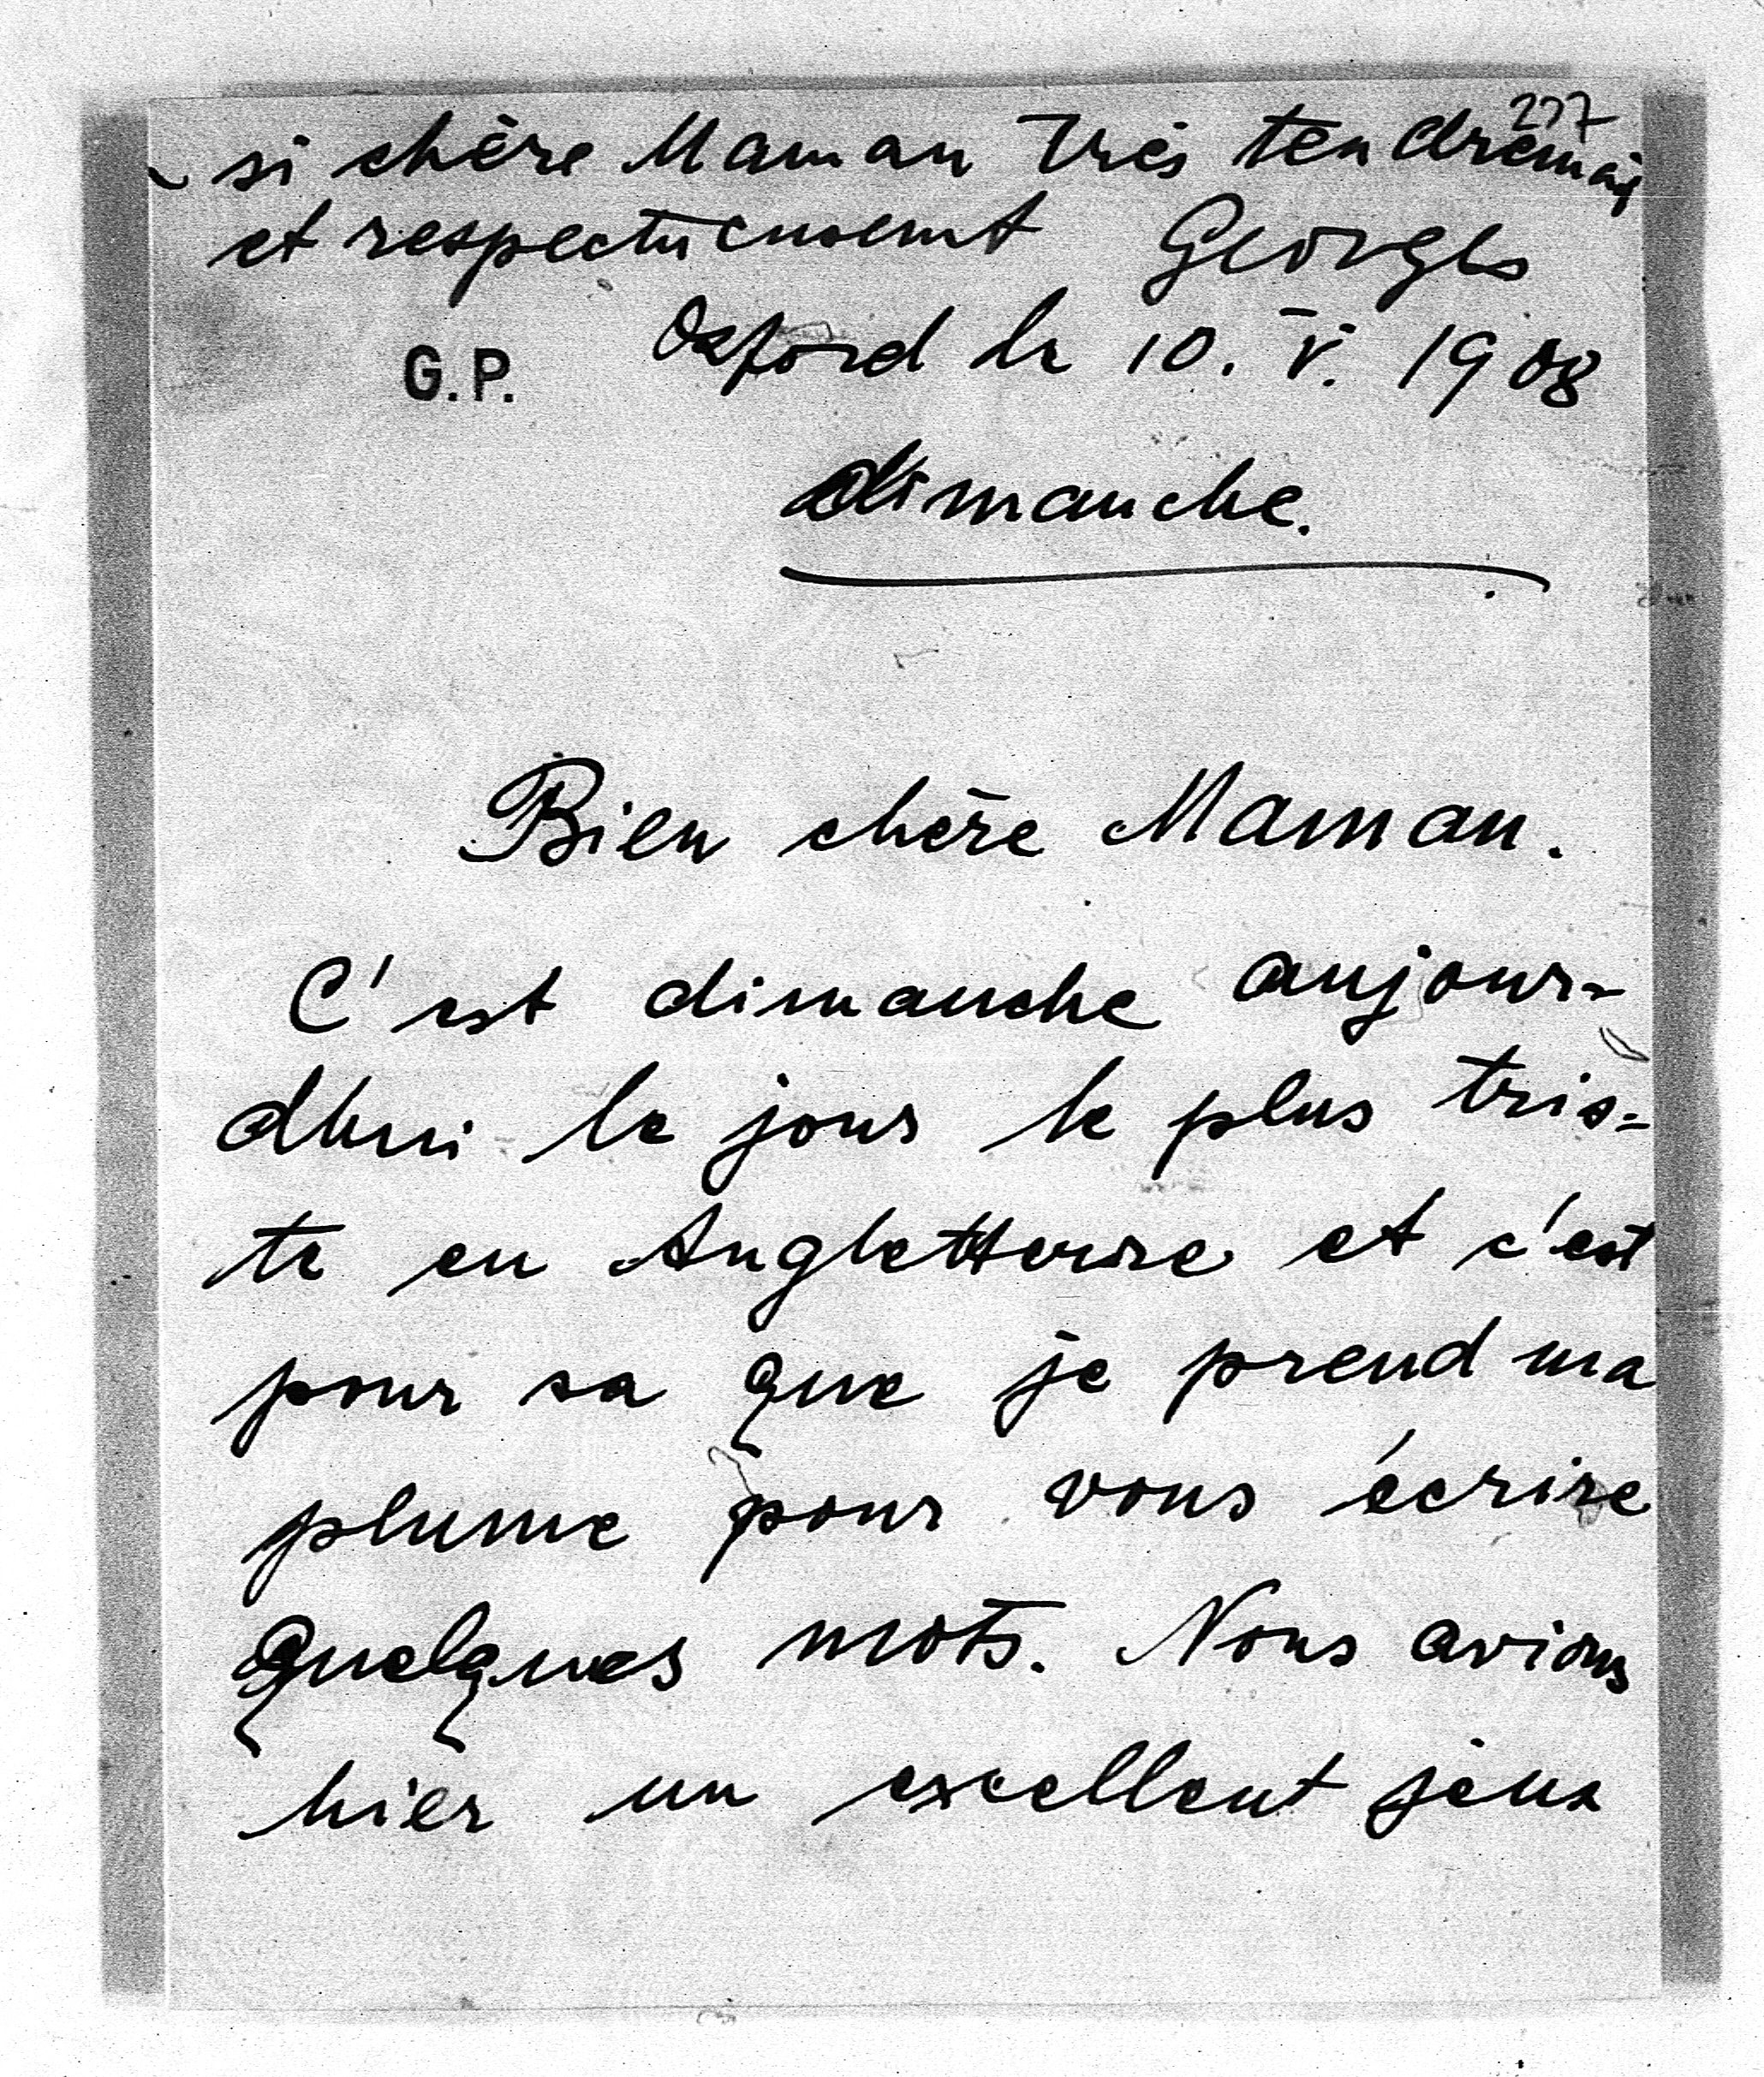 277
si chère Maman très tendremen
et respectueusemnt Georges
G.P. Oxford le 10. V. 1908
dimanche.
Bien chère Maman.
C'est dimanche aujour-
dhui le jour le plus tris-
te en Angletterre et c'est
pour sa que je prend ma
plume pour vous écrire
quelques mots. Nous avions
hier un excellent jeux